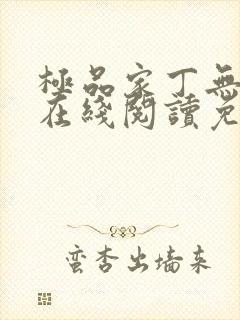 極品家丁無
在綫閱讀免
蛮杏出墙来